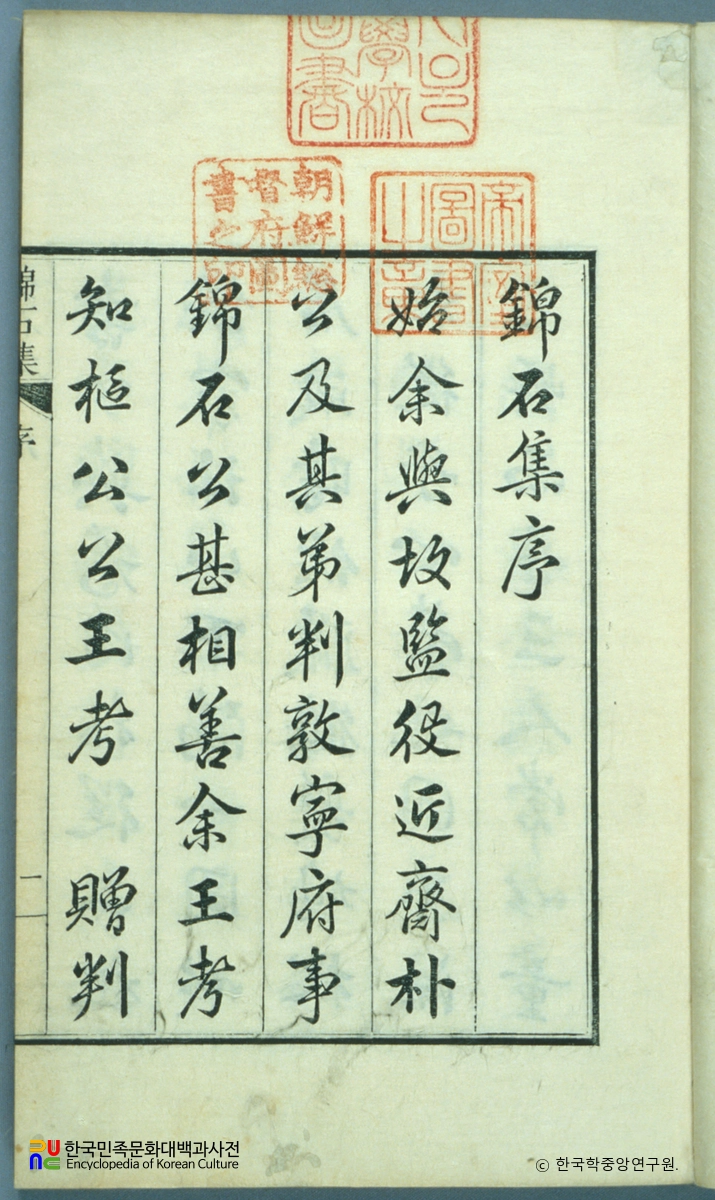 錦石集序
始余與故監役近齋朴
公及其弟判敦寧府事
錦石公甚相善余王考
知樞公公王考 贈判
錦石集 序
二
朝鮮總
督府圖
書之印
帝室
圖書
之章
學校
圖書
한국민족문화대백과사전
Encyclopedia of Korean Culture
© 한국학중앙연구원.